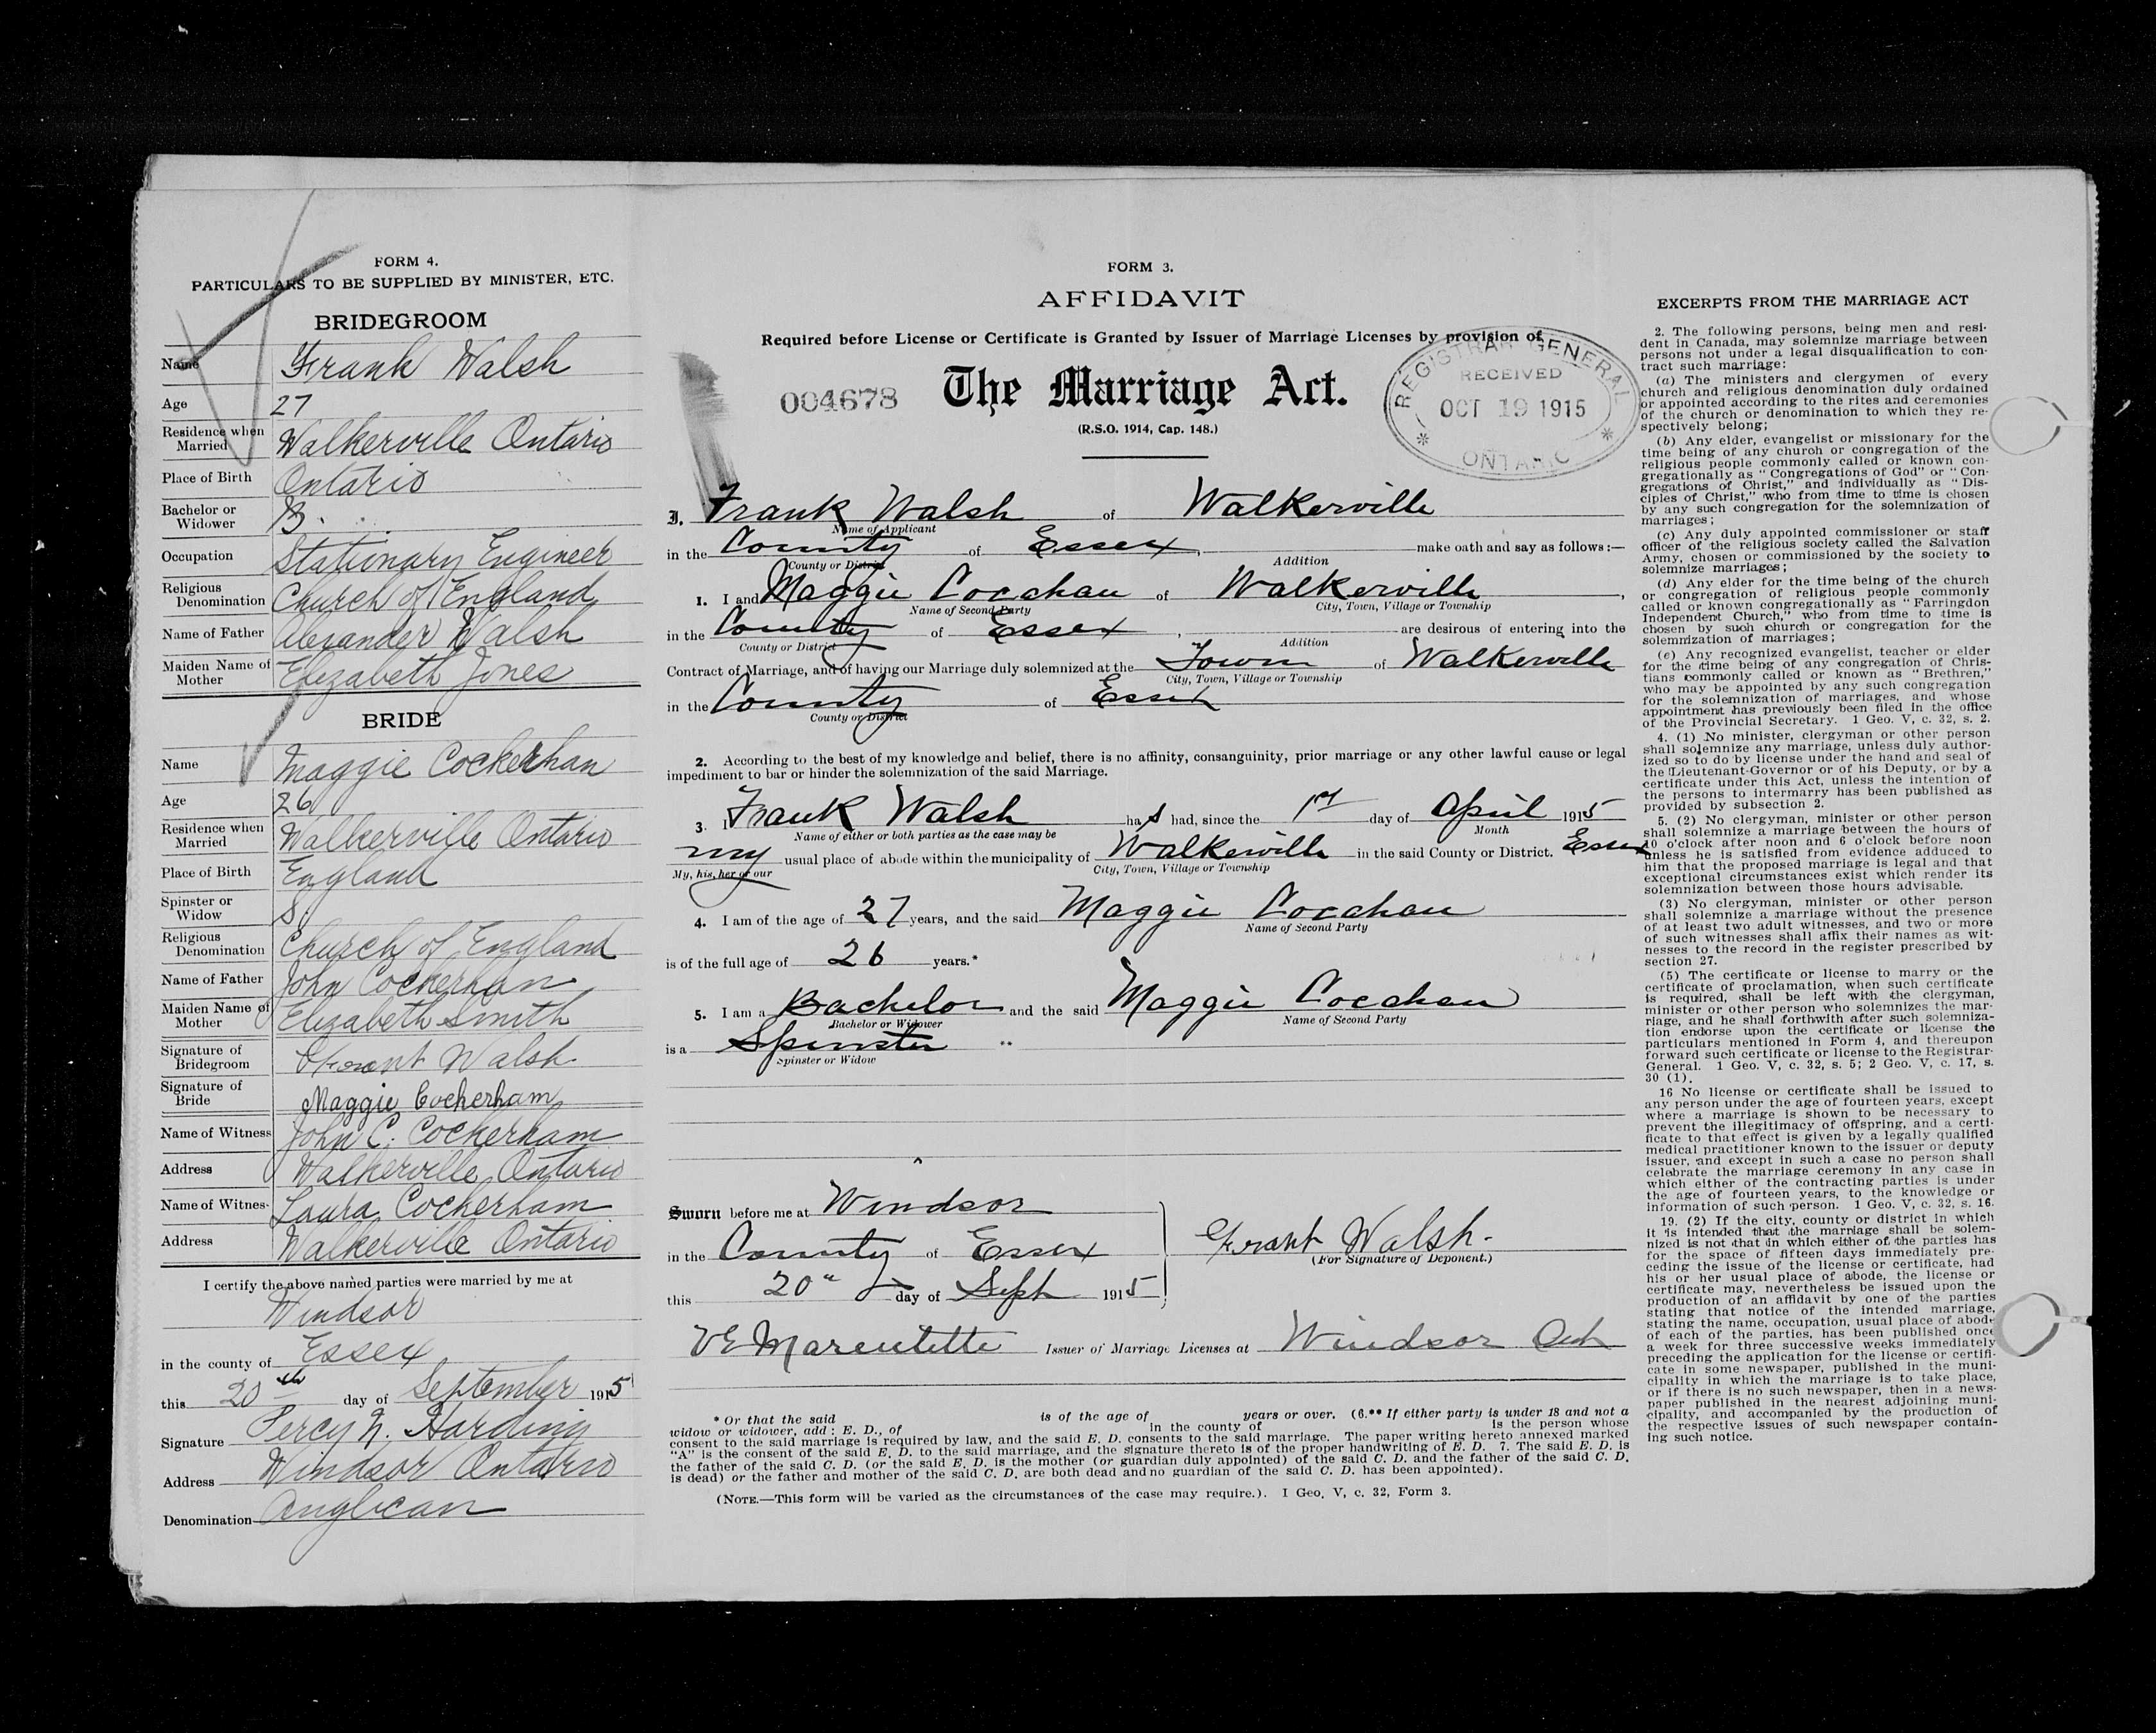 FORM 4.
PARTICULARS TO BE SUPPLIED BY MINISTER, ETC.
BRIDEGROOM
Name Frank Walsh
Age 27
Residence when Married Walkerville Ontario
Place of Birth Ontario
Bachelor or Widower B.
Occupation Stationary Engineer
Religious Denomination Church of England
Name of Father Alexander Walsh
Maiden Name of Mother Elizabeth Jones
BRIDE
Name Maggie Cockerhan
Age 26
Residence when Married Walkerville Ontario
Place of Birth England
Spinster or Widow S.
Religious Denomination Church of England
Name of Father John Cockerhan
Maiden Name of Mother Elizabeth Smith
Signature of Bridegroom Frank Walsh
Signature of Bride Maggie Cockerham
Name of Witness John C. Cockerham
Address Walkerville Ontario
Name of Witnes- Laura Cockerham
Address Walkerville Ontario
I certify the above named parties were married by me at
Windsor
in the county of Essex
this 20th day of September 1915
Signature Percy N. Harding
Address Windsor Ontario
Denomination Anglican
FORM 3.
AFFIDAVIT
Required before License or Certificate is Granted by Issuer of Marriage Licenses by provision of
004678 The Marriage Act.
(R.S.O. 1914, Cap. 148.)
REGISTRAR GENERAL
RECEIVED
OCT 19 1915
ONTARIO
I, Frank Walsh of Walkerville
Name of Applicant
in the County of Essex, make oath and say as follows:—
County or District Addition
1. I and Maggie Cocahan of Walkerville,
Name of Second Party City, Town, Village or Township
in the County of Essex, are desirous of entering into the
County or District Addition
Contract of Marriage, and of having our Marriage duly solemnized at the Town of Walkerville
City, Town, Village or Township
in the County of Essex
County or District
2. According to the best of my knowledge and belief, there is no affinity, consanguinity, prior marriage or any other lawful cause or legal
impediment to bar or hinder the solemnization of the said Marriage.
3. I Frank Walsh has had, since the 1st day of April 1915
Name of either or both parties as the case may be Month
my usual place of abode within the municipality of Walkerville in the said County or District. Essex
My, his, her or our City, Town, Village or Township
4. I am of the age of 27 years, and the said Maggie Cocahan
Name of Second Party
is of the full age of 26 years.*
5. I am a Bachelor and the said Maggie Cocahan
Bachelor or Widower Name of Second Party
is a Spinster
Spinster or Widow
Sworn before me at Windsor
in the County of Essex Frank Walsh.
(For Signature of Deponent.)
this 20" day of Sept 1915
VE Marentette Issuer of Marriage Licenses at Windsor Ont
* Or that the said is of the age of years or over. (6.** If either party is under 18 and not a
widow or widower, add: E. D., of in the county of is the person whose
consent to the said marriage is required by law, and the said E. D. consents to the said marriage. The paper writing hereto annexed marked
"A" is the consent of the said E. D. to the said marriage, and the signature thereto is of the proper handwriting of E. D. 7. The said E. D. is
the father of the said C. D. (or the said E. D. is the mother (or guardian duly appointed) of the said C. D. and the father of the said C. D.
is dead) or the father and mother of the said C. D. are both dead and no guardian of the said C. D. has been appointed).
(NOTE.—This form will be varied as the circumstances of the case may require.). 1 Geo. V, c. 32, Form 3.
EXCERPTS FROM THE MARRIAGE ACT
2. The following persons, being men and resi-
dent in Canada, may solemnize marriage between
persons not under a legal disqualification to con-
tract such marriage:
(a) The ministers and clergymen of every
church and religious denomination duly ordained
or appointed according to the rites and ceremonies
of the church or denomination to which they re-
spectively belong;
(b) Any elder, evangelist or missionary for the
time being of any church or congregation of the
religious people commonly called or known con-
gregationally as "Congregations of God" or "Con-
gregations of Christ," and individually as "Dis-
ciples of Christ," who from time to time is chosen
by any such congregation for the solemnization of
marriages;
(c) Any duly appointed commissioner or staff
officer of the religious society called the Salvation
Army, chosen or commissioned by the society to
solemnize marriages;
(d) Any elder for the time being of the church
or congregation of religious people commonly
called or known congregationally as "Farringdon
Independent Church," who from time to time is
chosen by such church or congregation for the
solemnization of marriages;
(e) Any recognized evangelist, teacher or elder
for the time being of any congregation of Chris-
tians commonly called or known as "Brethren,"
who may be appointed by any such congregation
for the solemnization of marriages, and whose
appointment has previously been filed in the office
of the Provincial Secretary. 1 Geo. V, c. 32, s. 2.
4. (1) No minister, clergyman or other person
shall solemnize any marriage, unless duly author-
ized so to do by license under the hand and seal of
the Lieutenant-Governor or of his Deputy, or by a
certificate under this Act, unless the intention of
the persons to intermarry has been published as
provided by subsection 2.
5. (2) No clergyman, minister or other person
shall solemnize a marriage between the hours of
10 o'clock after noon and 6 o'clock before noon
unless he is satisfied from evidence adduced to
him that the proposed marriage is legal and that
exceptional circumstances exist which render its
solemnization between those hours advisable.
(3) No clergyman, minister or other person
shall solemnize a marriage without the presence
of at least two adult witnesses, and two or more
of such witnesses shall affix their names as wit-
nesses to the record in the register prescribed by
section 27.
(5) The certificate or license to marry or the
certificate of proclamation, when such certificate
is required, shall be left with the clergyman,
minister or other person who solemnizes the mar-
riage, and he shall forthwith after such solemniza-
tion endorse upon the certificate or license the
particulars mentioned in Form 4, and thereupon
forward such certificate or license to the Registrar-
General. 1 Geo. V, c. 32, s. 5; 2 Geo. V, c. 17, s.
30 (1).
16 No license or certificate shall be issued to
any person under the age of fourteen years, except
where a marriage is shown to be necessary to
prevent the illegitimacy of offspring, and a certi-
ficate to that effect is given by a legally qualified
medical practitioner known to the issuer or deputy
issuer, and except in such a case no person shall
celebrate the marriage ceremony in any case in
which either of the contracting parties is under
the age of fourteen years, to the knowledge or
information of such person. 1 Geo. V, c. 32, s. 16.
19. (2) If the city, county or district in which
it is intended that the marriage shall be solem-
nized is not that in which either of the parties has
for the space of fifteen days immediately pre-
ceding the issue of the license or certificate, had
his or her usual place of abode, the license or
certificate may, nevertheless be issued upon the
production of an affidavit by one of the parties
stating that notice of the intended marriage,
stating the name, occupation, usual place of abode
of each of the parties, has been published once
a week for three successive weeks immediately
preceding the application for the license or certifi-
cate in some newspaper, published in the muni-
cipality in which the marriage is to take place,
or if there is no such newspaper, then in a news-
paper published in the nearest adjoining muni-
cipality, and accompanied by the production of
the respective issues of such newspaper contain-
ing such notice.